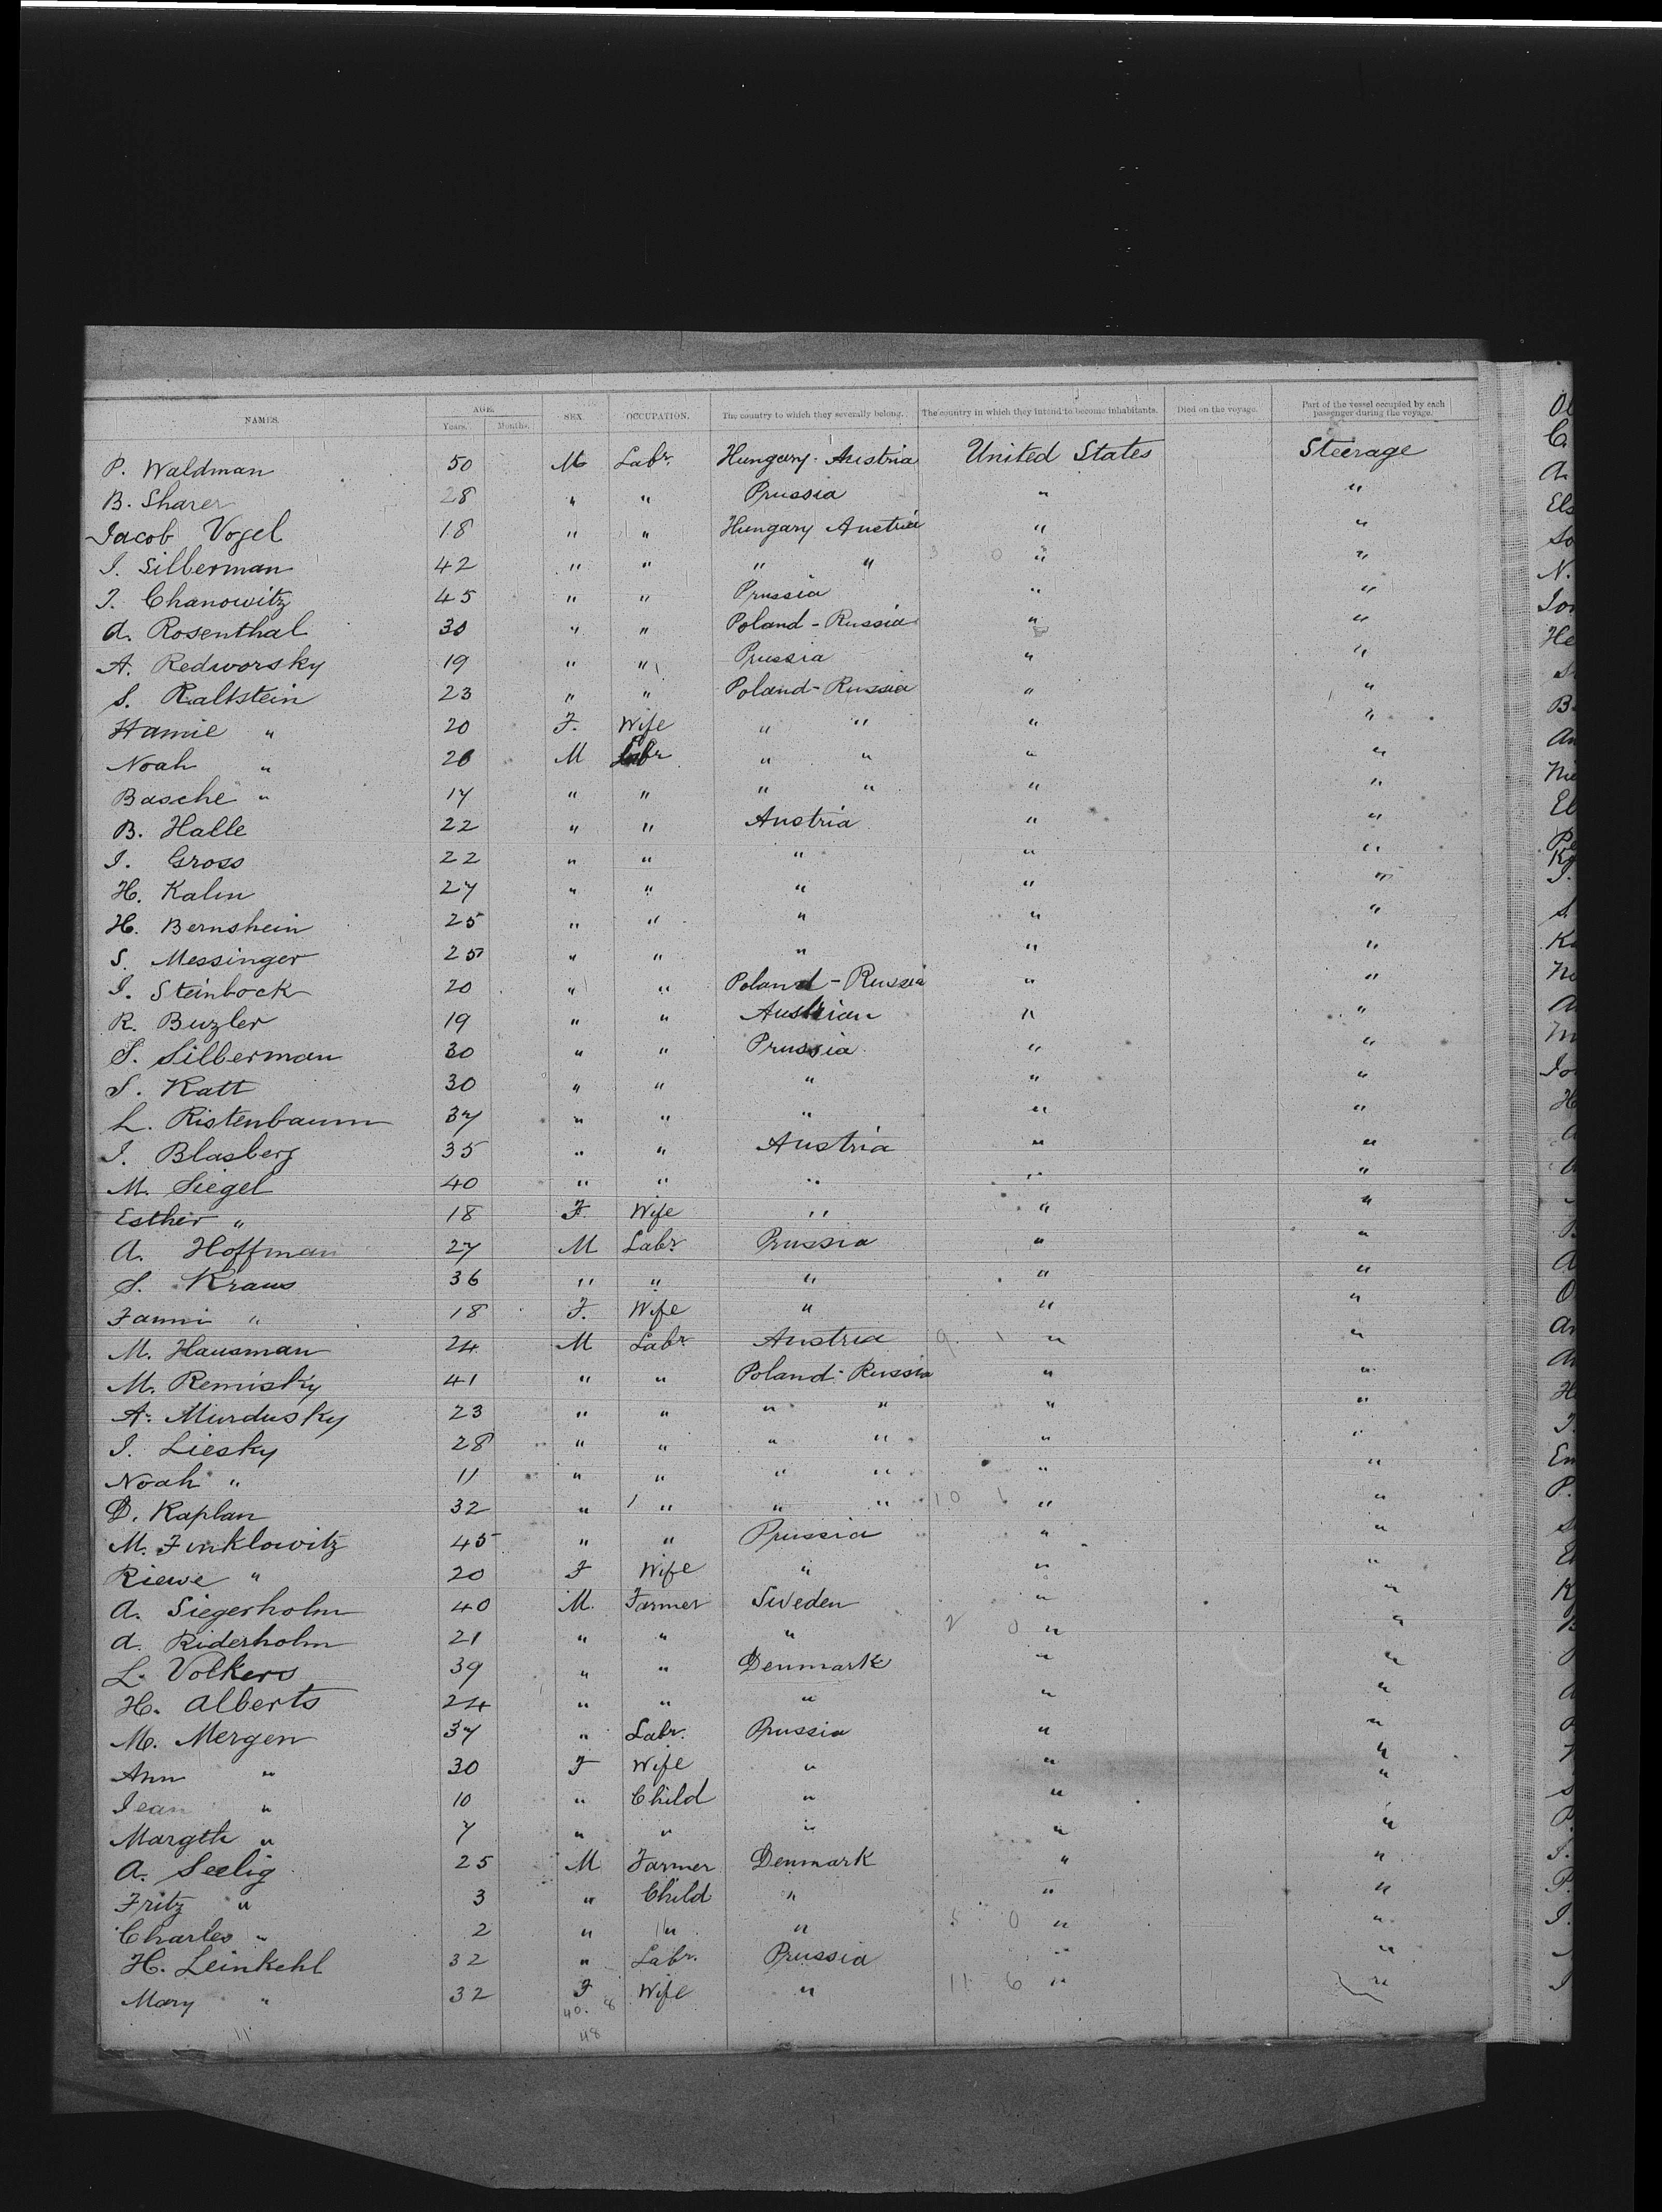 NAMES. AGE. SEX. OCCUPATION. The country to which they severally belong. The country in which they intend to become inhabitants. Died on the voyage. Part of the vessel occupied by each passenger during the voyage.
Years. Months.
P. Waldman 50 M Labr. Hungary-Austria United States Steerage
B. Sharer 28 " " Prussia " "
Jacob Vogel 18 " " Hungary Austria " "
I. Silberman 42 " " " " " "
I. Chanowitz 45 " " Prussia " "
A. Rosenthal 30 " " Poland-Russia " "
A. Redworsky 19 " " Prussia " "
S. Raltstein 23 " " Poland-Russia " "
Hamie " 20 F. Wife " " " "
Noah " 26 M Labr " " " "
Basche " 17 " " " " " "
B. Halle 22 " " Austria " "
I. Gross 22 " " " " "
H. Kalm 27 " " " " "
H. Bernshein 25 " " " " "
S. Messinger 25 " " " " "
I. Steinbock 20 " " Poland-Russia " "
R. Buzler 19 " " Austrian " "
S. Silberman 30 " " Prussia " "
S. Katt 30 " " " " "
L. Ristenbaum 37 " " " " "
I. Blasberg 35 " " Austria " "
M. Siegel 40 " " " " "
Esther " 18 F. Wife " " "
A. Hoffman 27 M Labr. Prussia " "
S. Kraus 36 " " " " "
Fanni " 18 F. Wife " " "
M. Hausman 24 M Labr Austria 9. 1 " "
M. Remisky 41 " " Poland-Russia " "
A. Murdusky 23 " " " " " "
I. Liesky 28 " " " " " "
Noah " 11 " " " " " "
D. Kaplan 32 " " " " 10 1 " "
M. Finklowitz 45 " " Prussia " "
Riewe " 20 F Wife " " "
A. Siegerholm 40 M. Farmer Sweden " "
A. Riderholm 21 " " " 2 0 " "
L. Volkers 39 " " Denmark " "
H. Alberts 24 " " " " "
M. Mergen 37 " Labr. Prussia " "
Ann " 30 F Wife " " "
Jean " 10 " Child " " "
Margth " 7 " " " " "
A. Seelig 25 M Farmer Denmark " "
Fritz " 3 " Child " " "
Charles " 2 " " " 5 0 " "
H. Leinkehl 32 " Labr. Prussia " "
Mary " 32 F Wife " 11 6 " "
40. 8
48